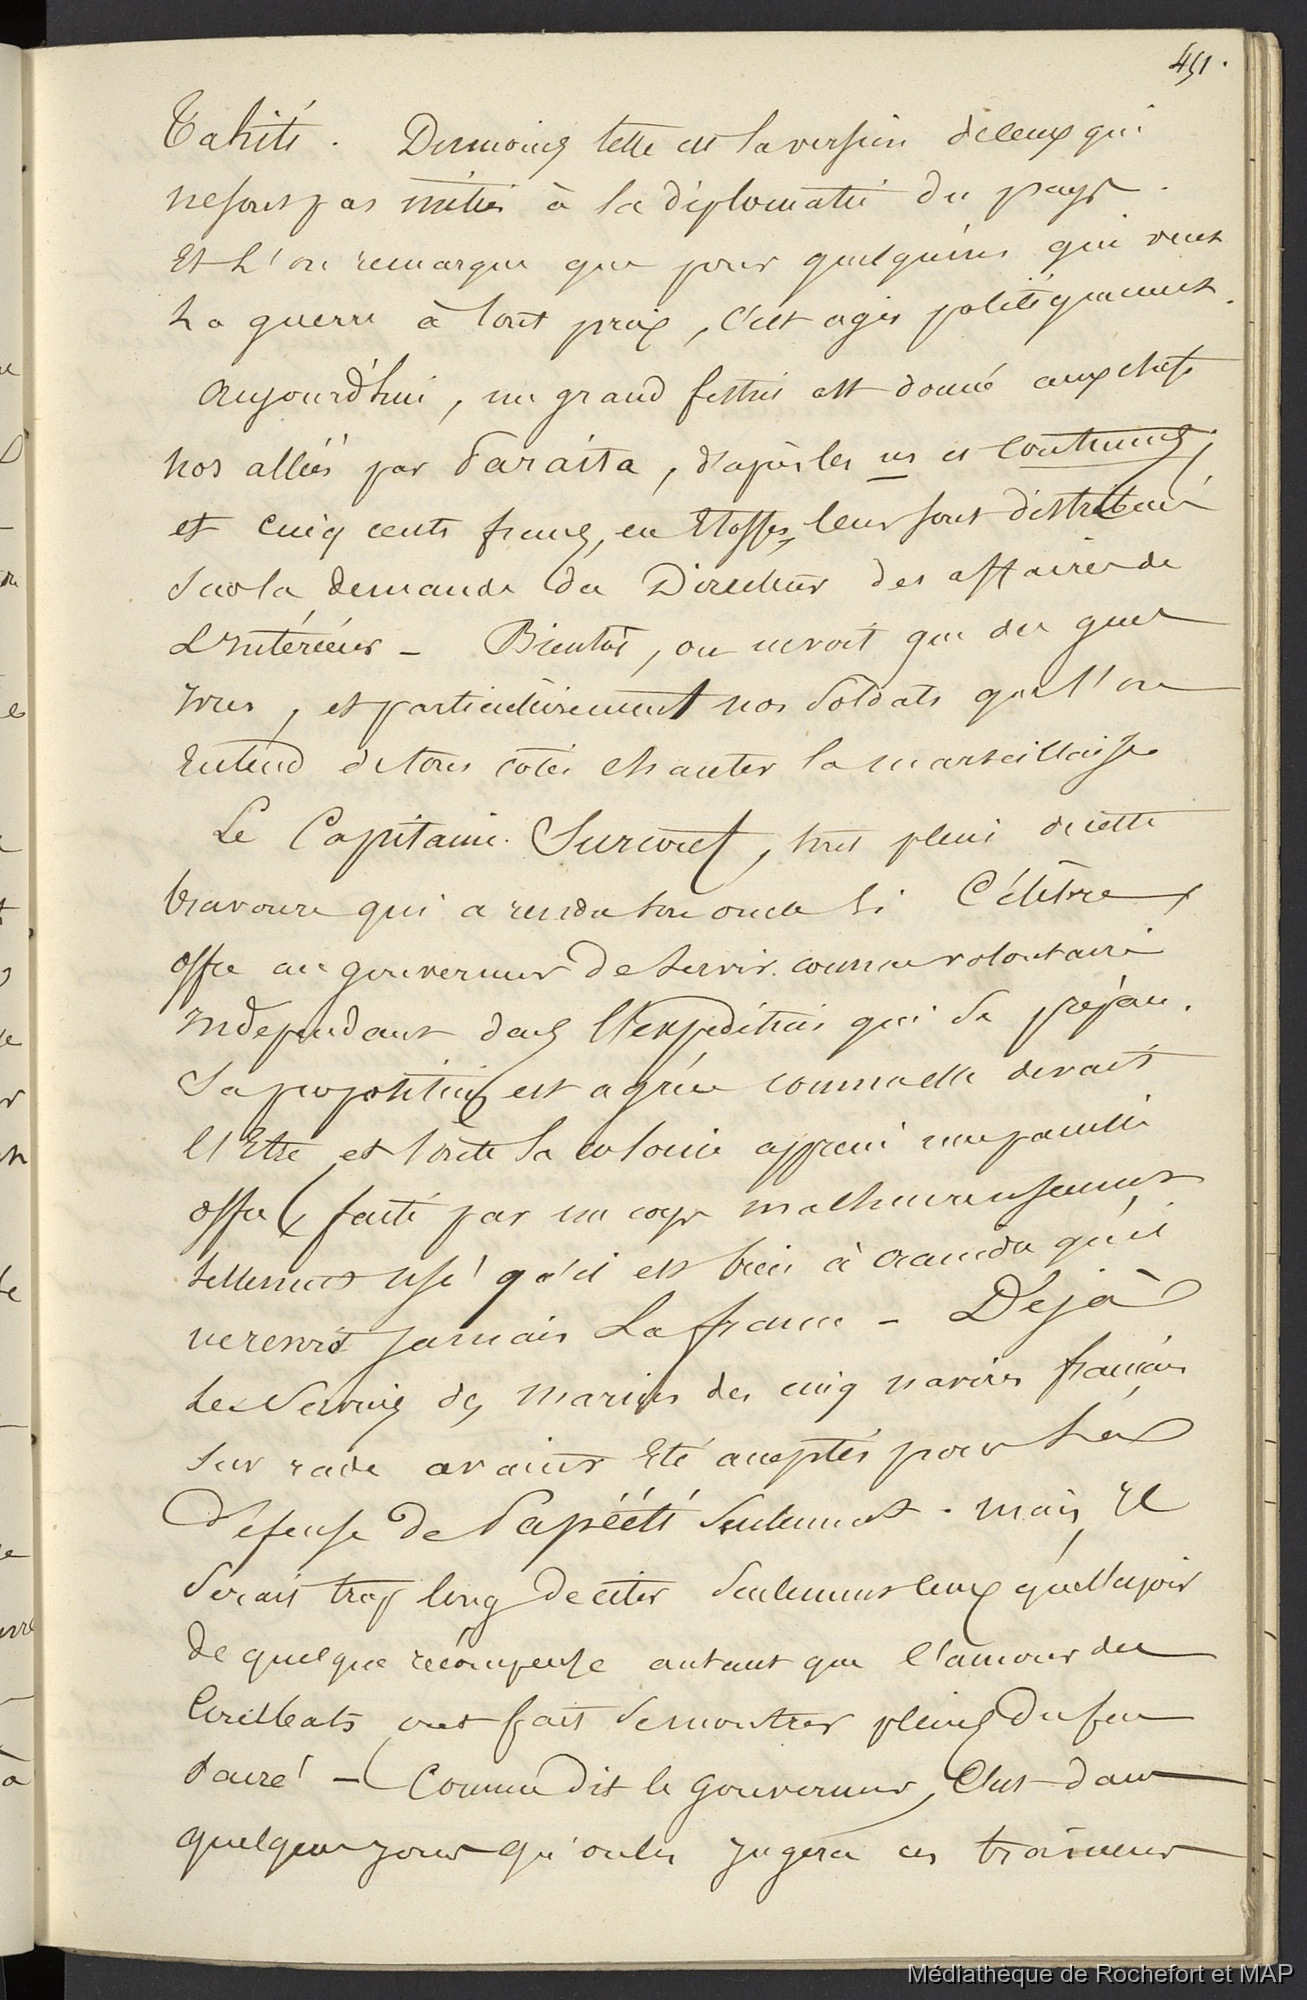 451.
Tahiti. Dumoins telle est la version de ceux qui
ne sont pas initiés à la diplomatie du pays.
Et l'on remarque que pour quelqu'uns qui veut
la guerre à tout prix, c'est agir politiquement.
Aujourd'hui, un grand festin est donné aux chefs
nos alliés par Paraita, d'après les us et coutumes,
et cinq cents francs, en Etoffes, leur sont distribués
sur la demande du Directeur des affaires de
L'Intérieur - Bientôt, on ne voit que des guer
riers, et particulièrement nos Soldats que l'on
Entend de tous côtés chanter la marseillaise
Le Capitaine tout plein de cette
bravoure qui a rendu son oncle si Célèbre,
offre au gouverneur de servir comme volontaire
Independant dans l'Expédition qui se prépare.
Sa proposition est agréée comme elle devait
l'Etre et toute la colonie apprécie une pareille
offre, faite par un corps malheureusement
tellement usé qu'il est bien à craindre qu'il
ne revoit jamais La france - Déjà
les Services des marins des cinq navires français
sur rade avaient Eté acceptés pour La
Défense de Papéété Seulement. mais, Il
Serait trop long de citer Seulement ceux que l'Espoir
de quelque récompense autant que l'amour des
Combats ont fait se montrer pleins du feu
sacré - Comme dit le Gouverneur, C'est dans
quelques jours qu'on les jugera ces traîneurs
Médiathèque de Rochefort et MAP